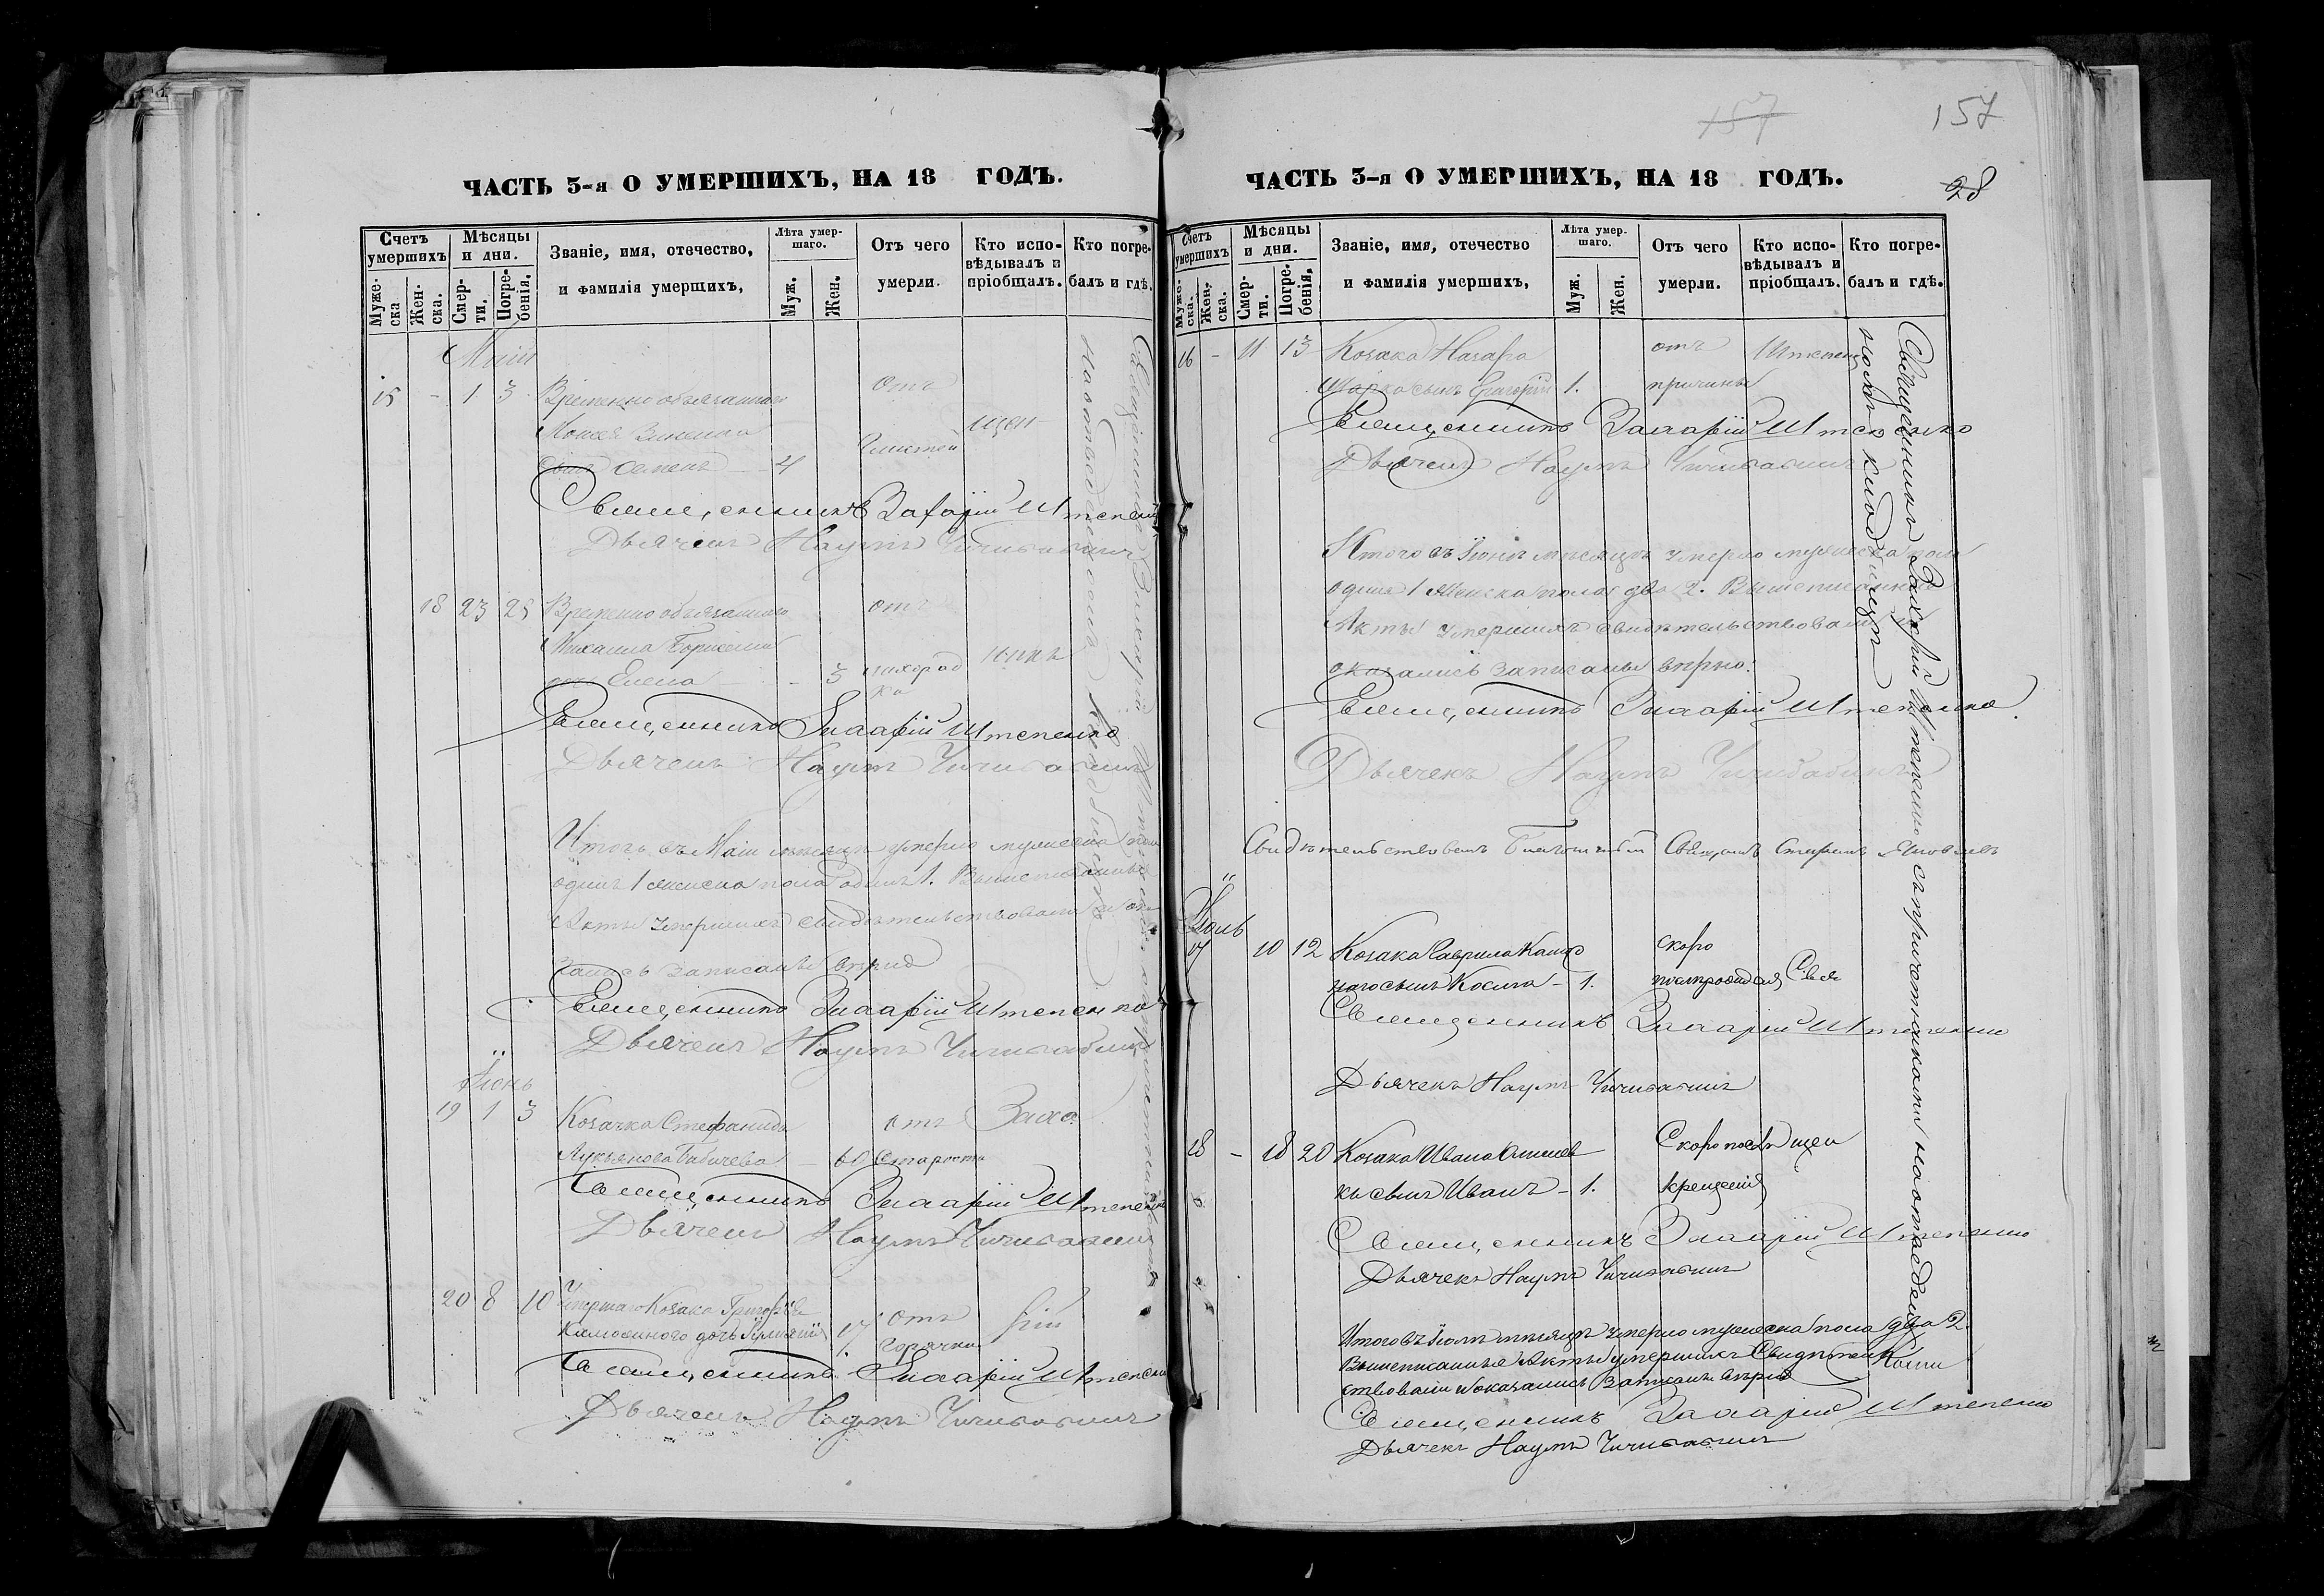 ЧАСТЬ 3-я О УМЕРШИХЪ, НА 18 ГОДЪ.
Счетъ умершихъ
Мѣсяцы и дни.
Званіе, имя, отечество, и фамилія умерщихъ,
Лѣта умершаго.
Отъ чего умерли.
Кто исповѣдывалъ и пріобщалъ.
Кто погребалъ и гдѣ.
Мужеска
Женска.
Смерти,
Погребенія.
Муж.
Жен.
Маій
15 - 1 3 Временно обязаннаго отъ
Моисея
сынъ Семенъ 4
Священникъ Захарій Штепенко
Дьячекъ Наумъ Чичибабинъ
18 23 25 Временно обязаннаго отъ
Михаила
дочь Елена - 3 лихорад
ка
Священникъ Захарій Штепенко
Дьячекъ Наумъ Чичибабинъ
Итого въ Маіи мѣсяцѣ умерло мужеска пола
одинъ 1 женска пола одинъ 1. Вышеписанные
Акты умершихъ свидѣтельствовали и ока
зались записаны вѣрно
Священникъ Захарій Штепенко
Дьячекъ Наумъ Чичибабинъ
Іюнь
19 1 3 Козачка Стефанида отъ Заха
Лукьянова - 60 старости
Священникъ Захарій Штепенко
Дьячекъ Наумъ Чичибабинъ
20 8 10 Умершаго Козака Григорія отъ рій
дочь 17 горячки
Священникъ Захарій Штепенко
Дьячекъ Наумъ Чичибабинъ
Священникъ Захарій Штепенко съ причетниками
на отведенномъ кладбищѣ
157
157
28
ЧАСТЬ 3-я О УМЕРШИХЪ, НА 18 ГОДЪ.
Счетъ умершихъ
Мѣсяцы и дни.
Званіе, имя, отечество и фамилія умершихъ,
Лѣта умершаго.
Отъ чего умерли.
Кто исповѣдывалъ и пріобщалъ.
Кто погребалъ и гдѣ.
Мужеска.
Женска.
Смерти.
Погребенія,
Муж.
Жен.
16 - 11 13 Козака Назара отъ Штепен
сынъ Григорій 1. причины
Священникъ Захарій Штепенко
Дьячекъ Наумъ Чичибабинъ
Итого въ Іюнѣ мѣсяцѣ умерло мужеска пола
одинъ 1 женска пола два 2. Вышеписанные
Акты умершихъ свидѣтельствовали и
оказались записаны вѣрно.
Священникъ Захарій Штепенко
Дьячекъ Наумъ Чичибабинъ
Свидѣтельствовалъ Благочинный Священникъ
Іюль
17 10 12 Козака Гаврила скоро
наго сынъ Косма - 1. Свя
Священникъ Захарій Штепенко
Дьячекъ Наумъ Чичибабинъ
18 - 18 20 Козака Ивана Скоропос щен
ка сынъ Иванъ - 1.
Священникъ Захарій Штепенко
Дьячекъ Наумъ Чичибабинъ
Итого въ Іюлѣ мѣсяцѣ умерло мужеска пола два 2.
Вышеписанные Акты умершихъ Свидѣтель
ствовали и оказались Записаны вѣрно
Священникъ Захарій Штепенко
Дьячекъ Наумъ Чичибабинъ
Священникъ Захарій Штепенко съ причетниками на отведен
номъ кладбищѣ